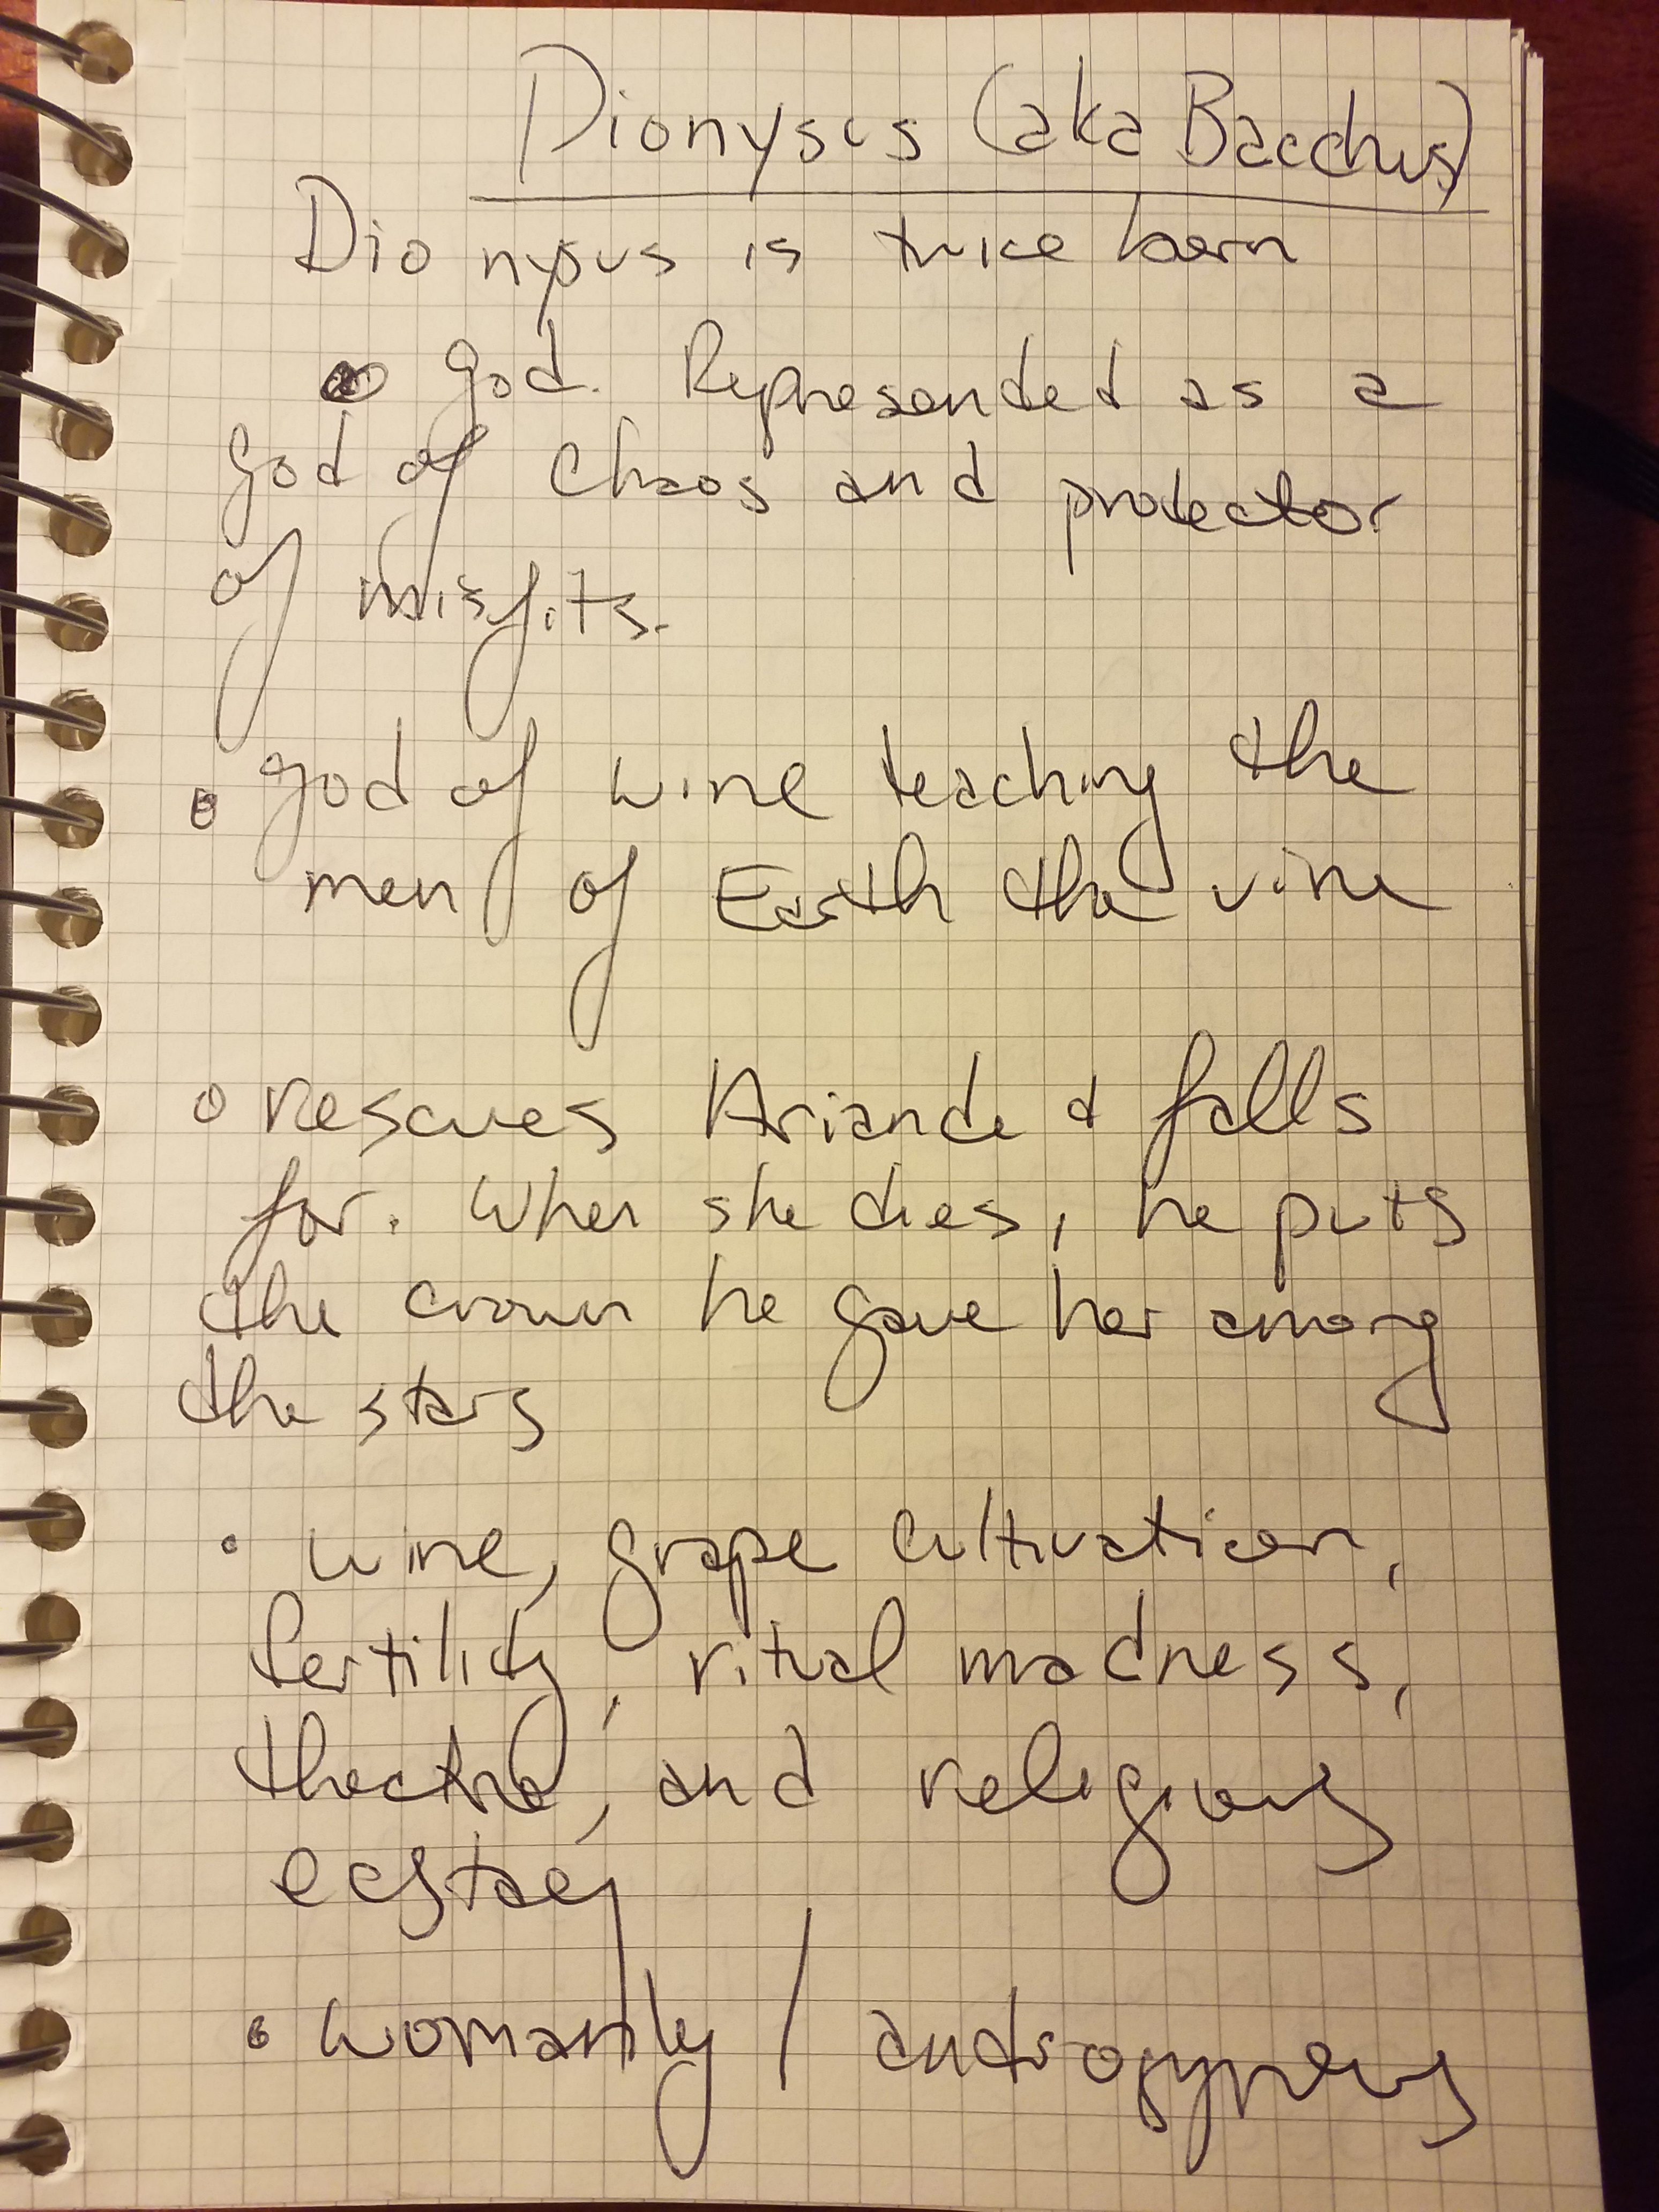 Dionysus (aka Bacchus)
Dionysus is twice born
god. Represented as a
god of Chaos and protector
of misfits.
• god of wine teaching the
men of Earth the vine
• rescues Ariande & falls
for. When she dies, he puts
the crown he gave her among
the stars
• wine, grape cultivation,
fertility, ritual madness,
theatre, and religious
ecstacy
• womanly / androgynous